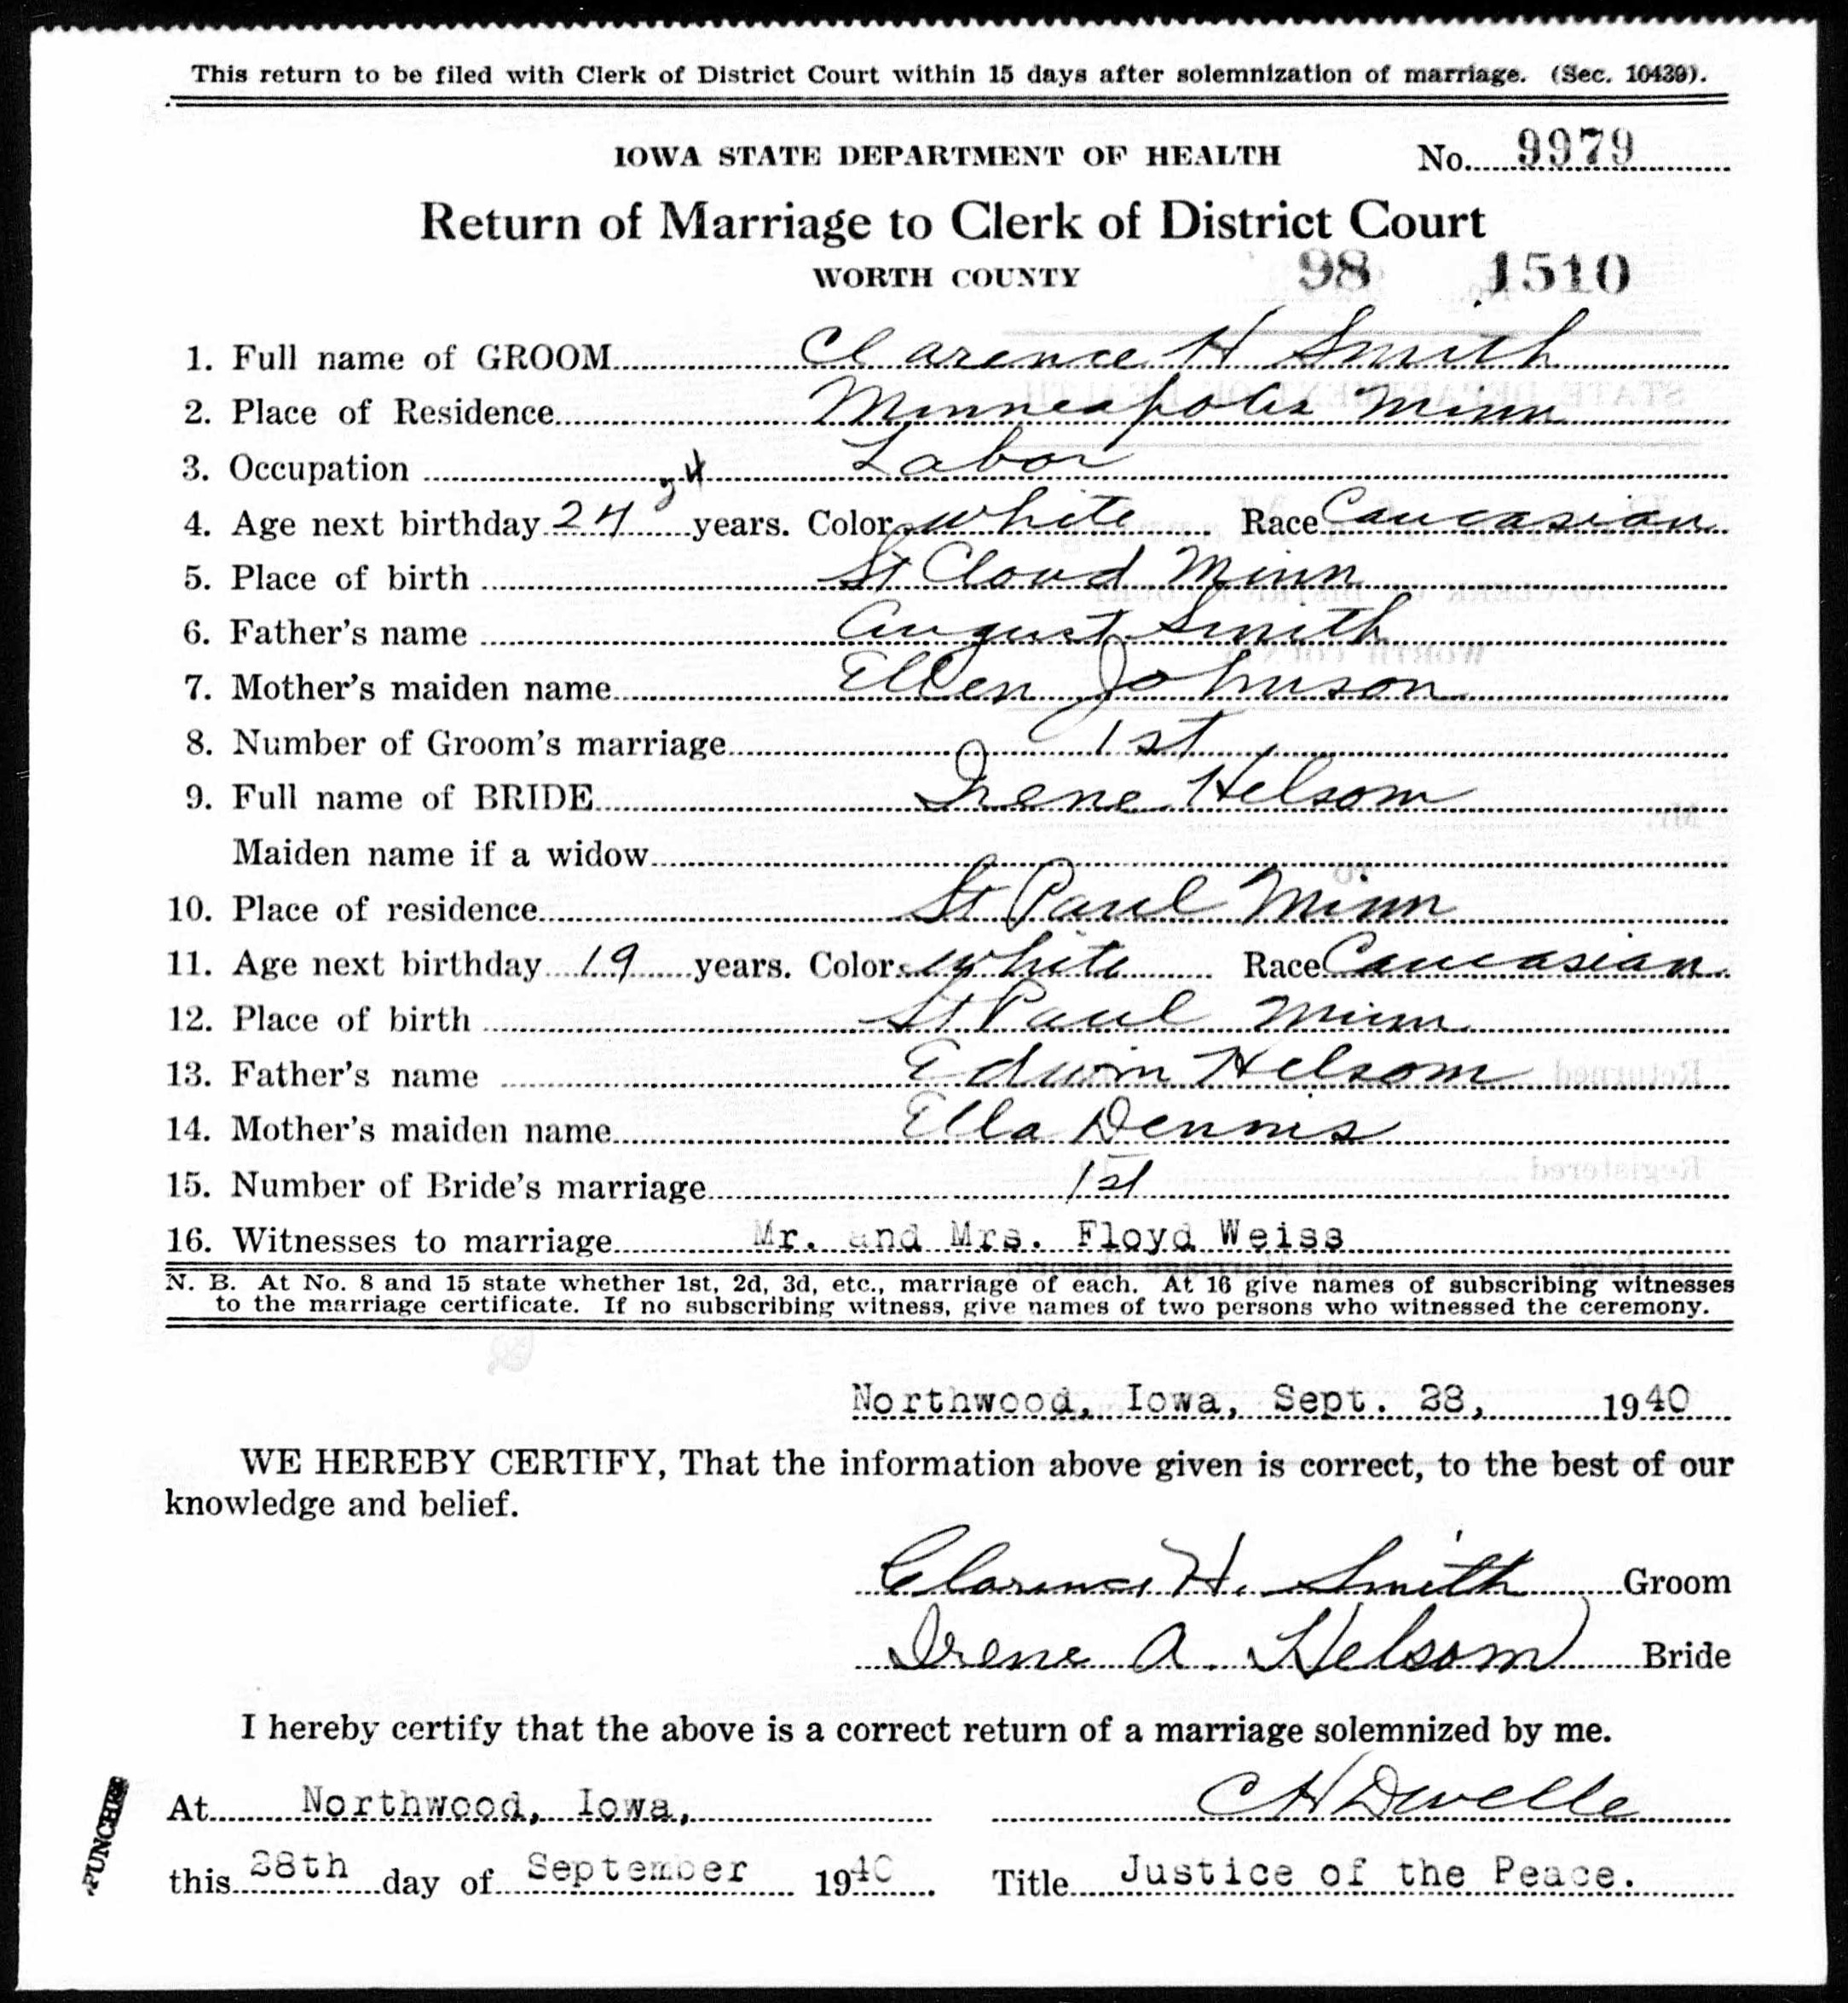 This return to be filed with Clerk of District Court within 15 days after solemnization of marriage. (Sec. 10439).
IOWA STATE DEPARTMENT OF HEALTH No. 9979
Return of Marriage to Clerk of District Court
WORTH COUNTY 98 1510
1. Full name of GROOM Clarence H Smith
2. Place of Residence Minneapolis Minn
3. Occupation Labor
24
4. Age next birthday 24 years. Color white Race Caucasian
5. Place of birth St Cloud Minn
6. Father's name August Smith
7. Mother's maiden name Ellen Johnson
8. Number of Groom's marriage 1st
9. Full name of BRIDE Irene Helsom
Maiden name if a widow
10. Place of residence St Paul Minn
11. Age next birthday 19 years. Color white Race Caucasian
12. Place of birth St Paul Minn
13. Father's name Edwin Helsom
14. Mother's maiden name Ella Dennis
15. Number of Bride's marriage 1st
16. Witnesses to marriage Mr. and Mrs. Floyd Weiss
N. B. At No. 8 and 15 state whether 1st, 2d, 3d, etc., marriage of each. At 16 give names of subscribing witnesses
to the marriage certificate. If no subscribing witness, give names of two persons who witnessed the ceremony.
Northwood, Iowa, Sept. 28, 1940
WE HEREBY CERTIFY, That the information above given is correct, to the best of our
knowledge and belief.
Clarence H. Smith Groom
Irene A. Helsom Bride
I hereby certify that the above is a correct return of a marriage solemnized by me.
At Northwood, Iowa, C H Dwelle
this 28th day of September 1940 Title Justice of the Peace.
PUNCHED